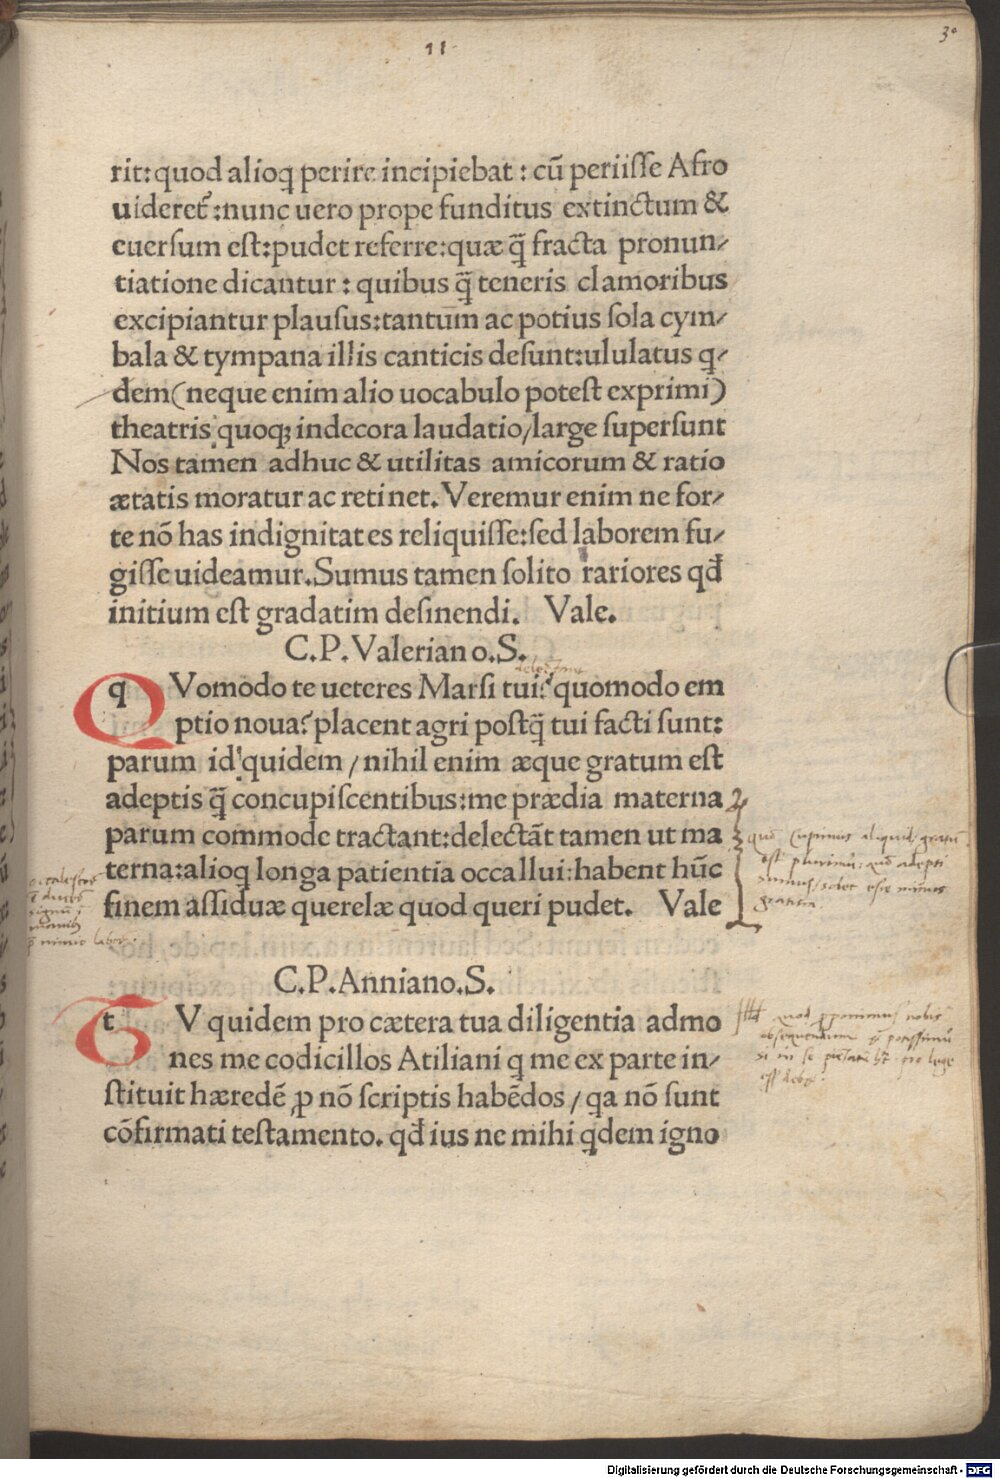 11
30
rit:quod alioq perire incipiebat : cū periisse Afro
uideret̃:nunc uero prope funditus extinctum &
euersum est:pudet referre:quæ q̃ fracta pronun/
tiatione dicantur : quibus q̃ teneris clamoribus
excipiantur plausus:tantum ac potius sola cym/
bala & tympana illis canticis desunt:ululatus q/
dem(neque enim alio uocabulo potest exprimi)
theatris quoq; indecora laudatio/large supersunt
Nos tamen adhuc & utilitas amicorum & ratio
ætatis moratur ac retinet. Veremur enim ne for/
te nō has indignitates reliquisse:sed laborem fu/
gisse uideamur. Sumus tamen solito rariores qđ
initium est gradatim desinendi. Vale.
C.P.Valeriano.S.
qVomodo te ueteres Marsi tui? quomodo em
ptio noua? placent agri postq̃ tui facti sunt:
parum id quidem / nihil enim æque gratum est
adeptis q̃ concupiscentibus:me prædia materna
parum commode tractant:delectāt tamen ut ma
terna:alioq longa patientia occallui:habent hūc
finem assiduæ querelæ quod queri pudet. Vale
C.P.Anniano.S.
tV quidem pro cætera tua diligentia admo
nes me codicillos Atiliani q me ex parte in/
stituit hæredē ꝓ nō scriptis habēdos / qa nō sunt
cōfirmati testamento. qđ ius ne mihi qdem igno
Digitalisierung gefördert durch die Deutsche Forschungsgemeinschaft - DFG